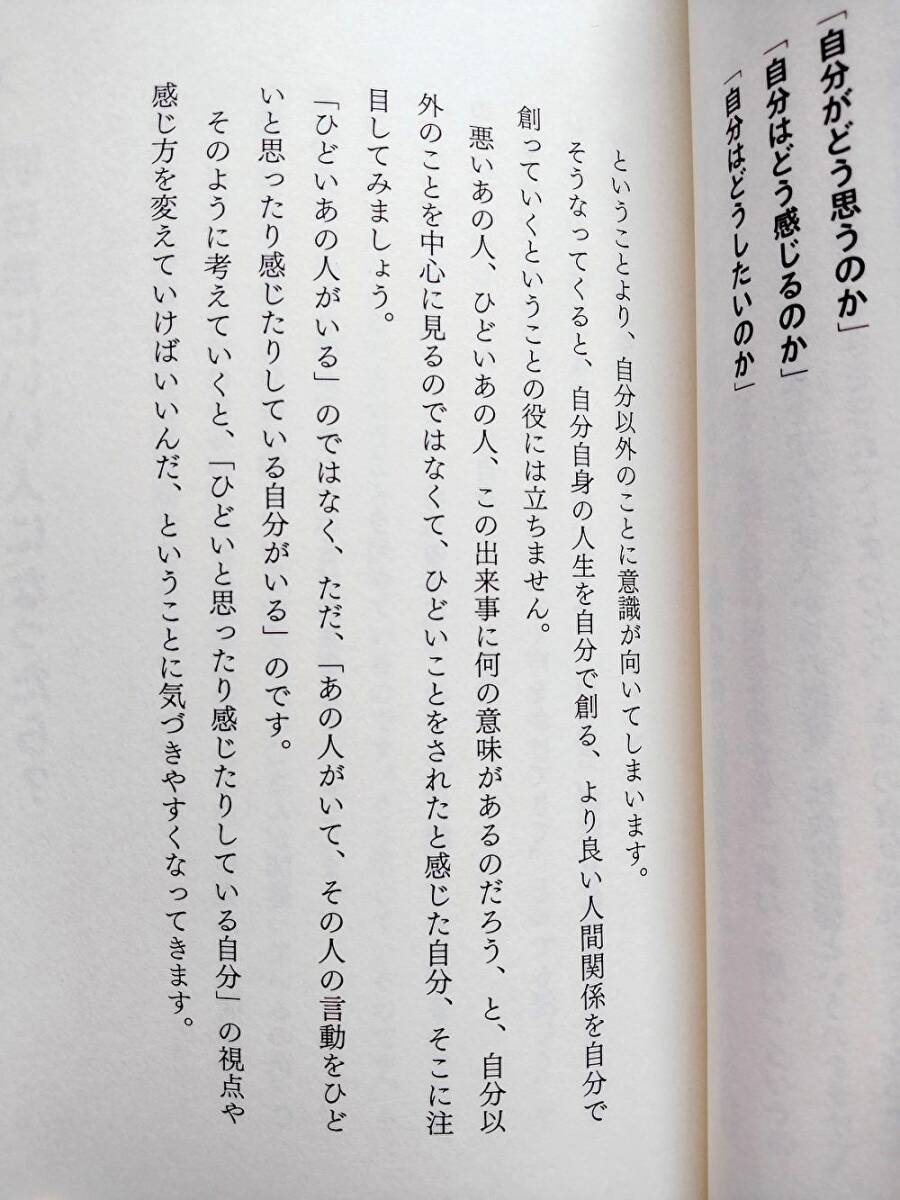 「自分がどう思うのか」
「自分はどう感じるのか」
「自分はどうしたいのか」
ということより、自分以外のことに意識が向いてしまいます。
そうなってくると、自分自身の人生を自分で創る、より良い人間関係を自分で
創っていくということの役には立ちません。
悪いあの人、ひどいあの人、この出来事に何の意味があるのだろう、と、自分以
外のことを中心に見るのではなくて、ひどいことをされたと感じた自分、そこに注
目してみましょう。
「ひどいあの人がいる」のではなく、ただ、「あの人がいて、その人の言動をひど
いと思ったり感じたりしている自分がいる」のです。
そのように考えていくと、「ひどいと思ったり感じたりしている自分」の視点や
感じ方を変えていけばいいんだ、ということに気づきやすくなってきます。